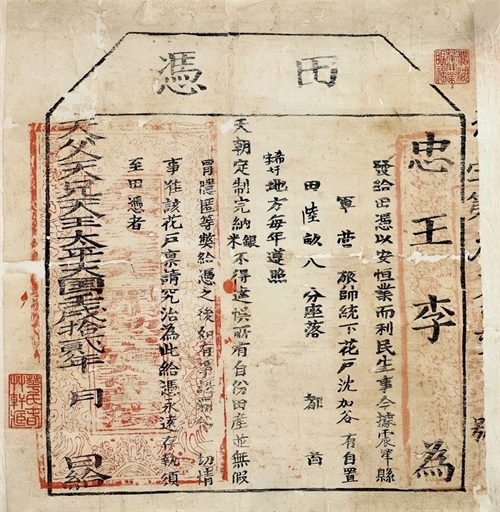 田憑
忠王李為
發給田憑以安恒業而利民生事今據震澤縣
軍營旅帥統下花戶沈加谷有自置
田陸畝八分座落都啚
地方每年遵照
天朝定制完納銀米不得遲悞所有自份田產並無假
冒隱匿等弊給憑之後如有爭訟霸佔一切情
事准該花戶稟請究治為此給憑永遠存執須
至田憑者
天父天兄天王太平天囯壬戌拾貳年月日給